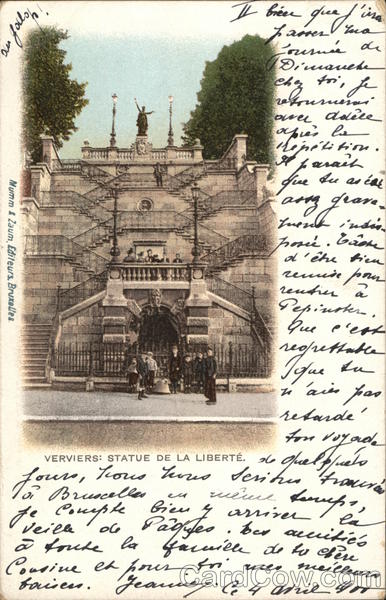 II bien que j'irai
passer ma
journée de
Dimanche
chez toi, je
retournerai
avec
après la
répétition.
Il paraît
que tu as été
assez grave-
ment indis-
posée. Tâche
d'être bien
remise pour
rentrer à
Pepinster.
Que c'est
regrettable
que tu
n'aies pas
retardé
ton voyage
de quelques
VERVIERS: STATUE DE LA LIBERTÉ.
jours, nous nous serions trouvées
à Bruxelles en même temps,
je compte bien y arriver la
veille de Pâques. Mes amitiés
à toute la famille de ta chère
Cousine et pour toi, mes meilleurs
baisers Jeanne. le 4 avril
Numm & Zaum, Editeurs, Bruxelles
CardCow.com